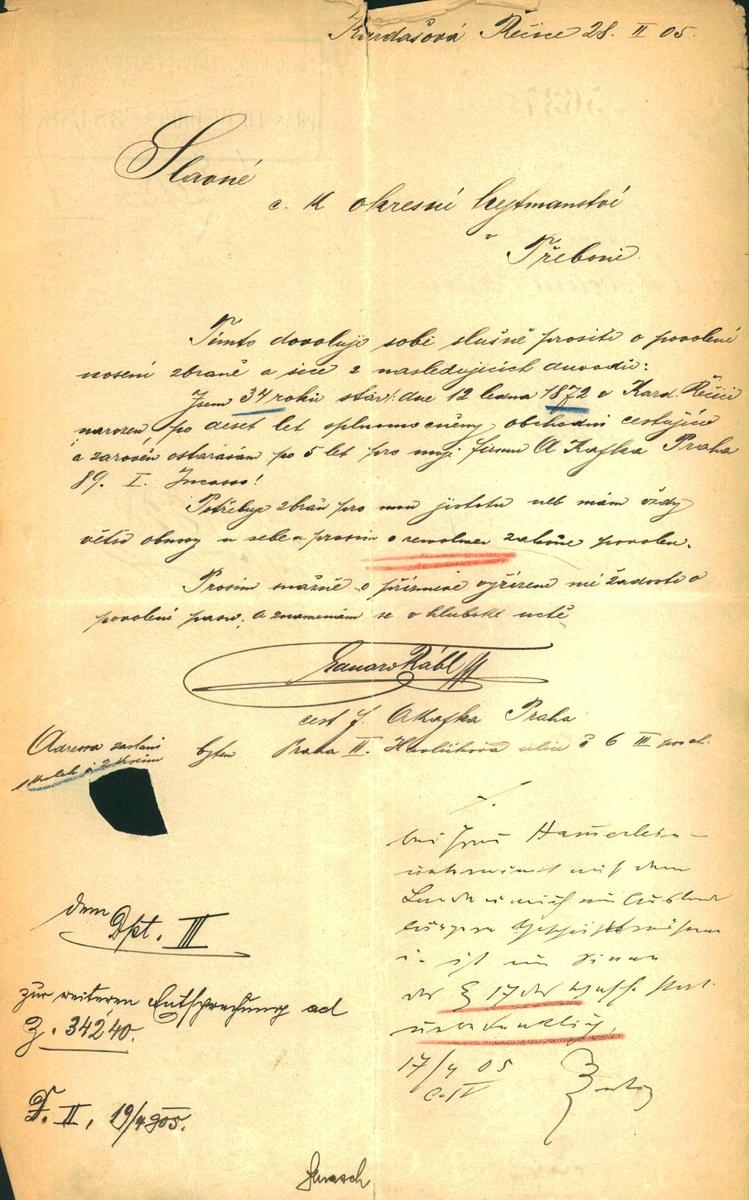 Kardašová Řečice 28. II 05.
Slavné
c. k okresní hejtmanství
v
Třeboni
Tímto dovoluji sobě slušně prositi o povolení
nosení zbraně a sice z následujících důvodů:
Jsem 34 roků stár: dne 12 ledna 1872 v Kard. Řečici
narozen, po deset let splnomocněný, obchodní cestující
a zároveň obstarávám po 5 let pro moji firmu A Kafka Praha
89. I. Incasso!
Potřebuji zbraň pro mou jistotu neb mám vždy
větší obnosy u sebe a prosím o revolver
Prosím snažně o příznivé vyřízení mé žádosti o
povolení pasu, a znamenám se v hluboké úctě
Eduard Rábl
cest f. A Kafka Praha
bytem Praha II. Havlíčkova ulice č 6 III posch.
Adressa zaslání
1 kolek à 2 korun
auf dem
Lande
i. ist im Sinne
des § 17 des Waff. Pat.
unbedenklich.
17/4 05
dem
Dpt. III
zur weiteren Entsprechung ad
Z. 34240.
D. II, 19/4 905.